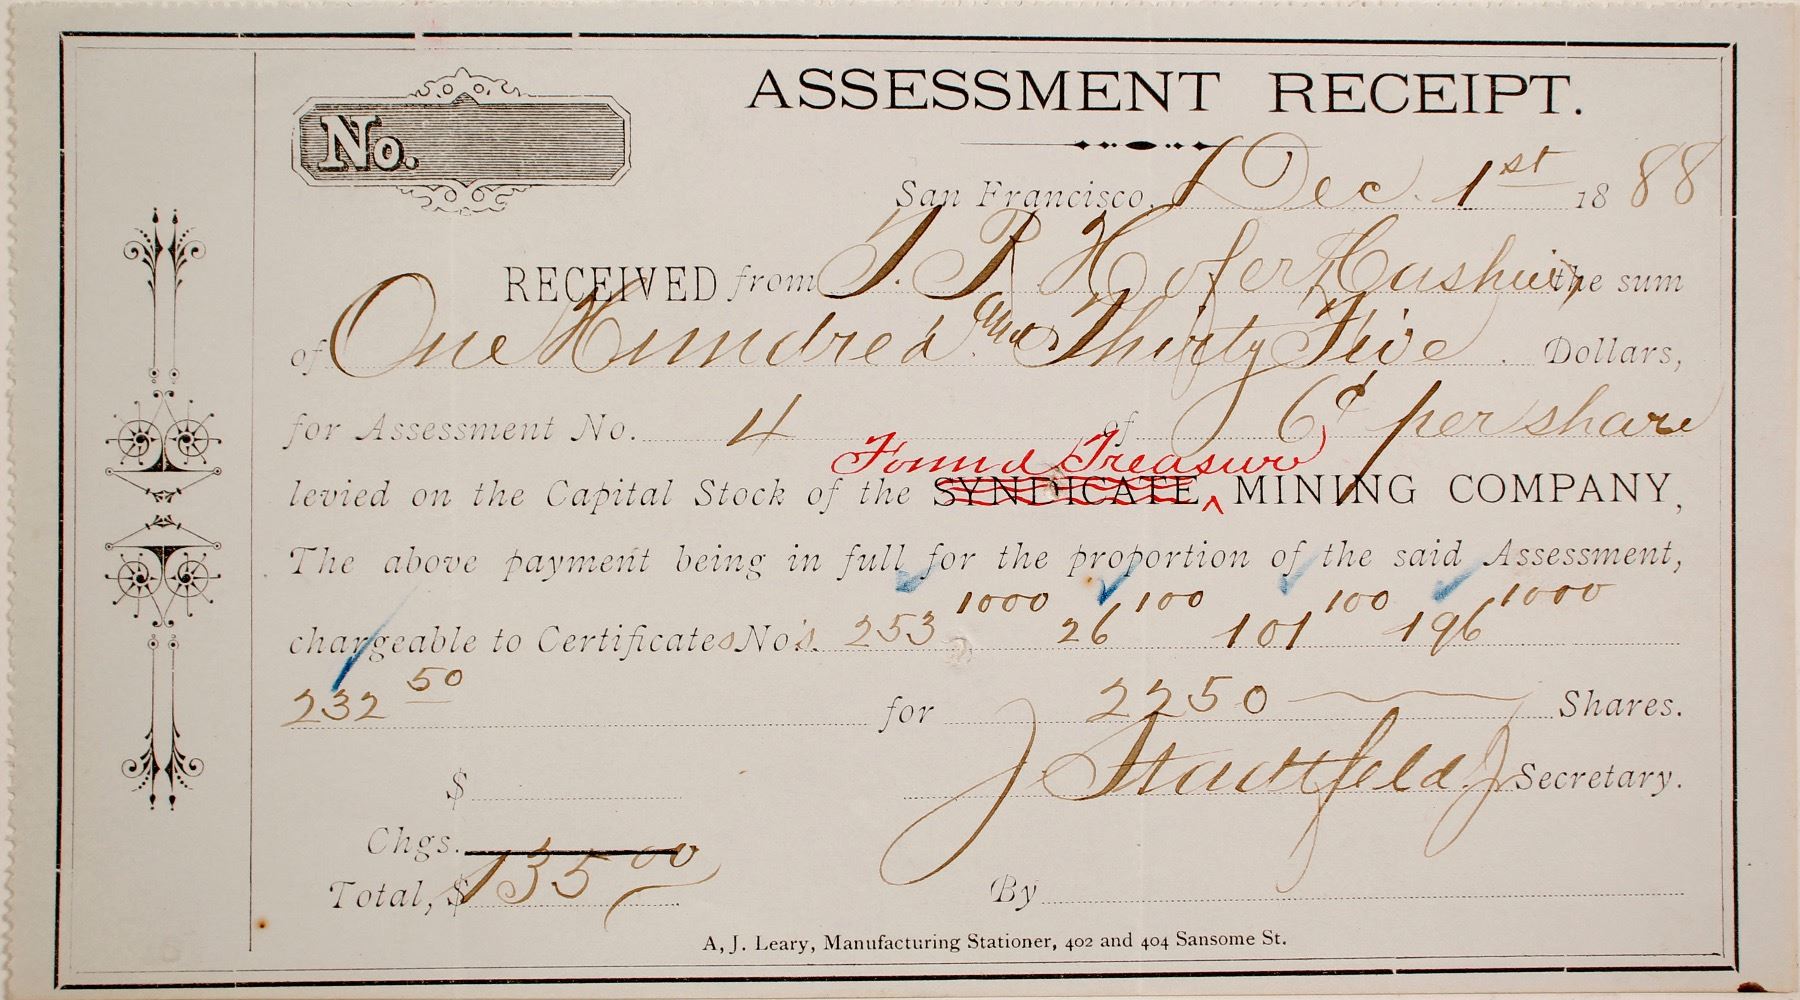 ASSESSMENT RECEIPT.
No.
San Francisco, Dec. 1st 1888
RECEIVED from T. R. Hofer Cashier the sum
of One Hundred and Thirty Five . Dollars,
for Assessment No. 4 of 6¢ per share
Found Treasure
levied on the Capital Stock of the SYNDICATE ^ MINING COMPANY,
The above payment being in full for the proportion of the said Assessment,
chargeable to Certificates No's. 253 1000 26 100 101 100 196 1000
232 50 for 2250 Shares.
$ J Stadtfeld Jr Secretary.
Chgs.
Total, $ 135 00 By
A, J. Leary, Manufacturing Stationer, 402 and 404 Sansome St.